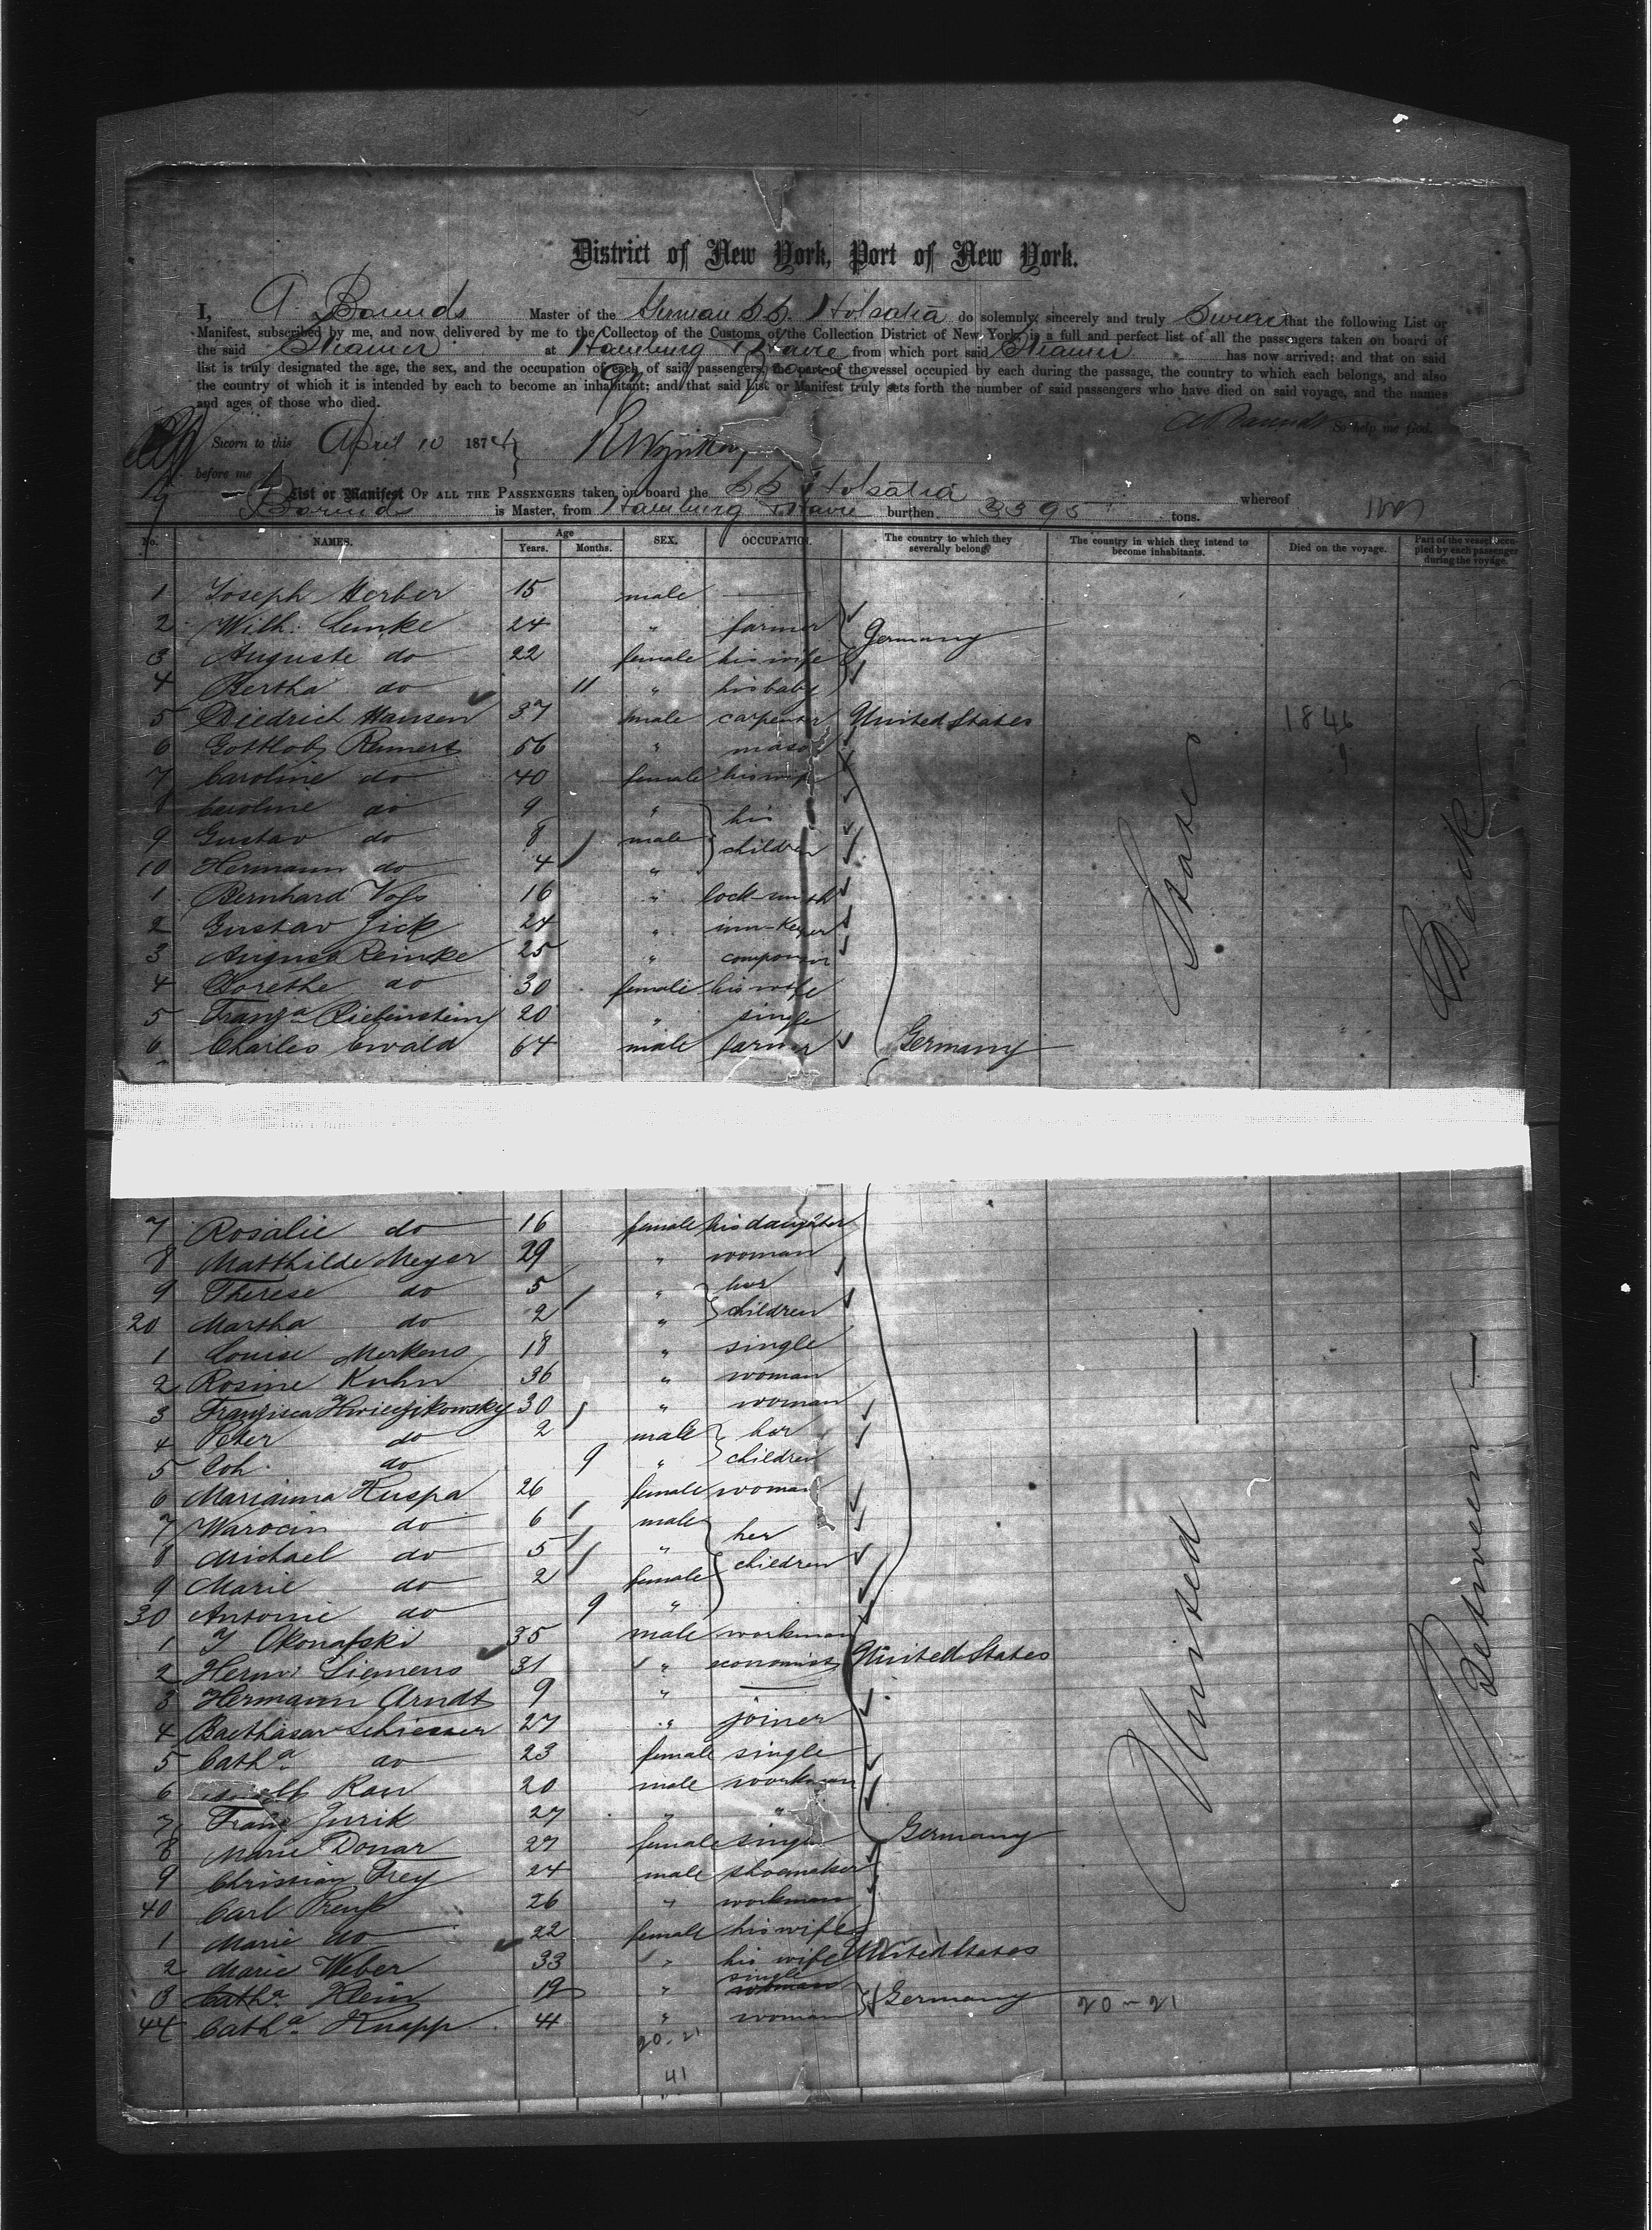 District of New York, Port of New York.
I, A. Barends Master of the German SS. Holsatia do solemnly, sincerely and truly Swear that the following List or
Manifest, subscribed by me, and now delivered by me to the Collector of the Customs of the Collection District of New York, is a full and perfect list of all the passengers taken on board of
the said Steamer at Hamburg & Havre from which port said Steamer has now arrived; and that on said
list is truly designated the age, the sex, and the occupation of each of said passengers, the part of the vessel occupied by each during the passage, the country to which each belongs, and also
the country of which it is intended by each to become an inhabitant; and that said List or Manifest truly sets forth the number of said passengers who have died on said voyage, and the names
and ages of those who died.
So help me God.
Sworn to this April 10 1874
before me
List or Manifest OF ALL THE PASSENGERS taken on board the SS Holsatia whereof
Barends is Master, from Hamburg & Havre burthen 3395 tons.
No. NAMES. Age Years. Months. SEX. OCCUPATION. The country to which they severally belong. The country in which they intend to become inhabitants. Died on the voyage. Part of the vessel occupied by each passenger during the voyage.
1 Joseph Herber 15 male —
2 Wilh. Lemke 24 " farmer
Germany
3 Auguste do 22 female his wife
4 Bertha do 11 " his baby
5 Diedrich Hansen 37 male carpenter United States 1846
6 Gottlob Reinert 56 " mason
7 Caroline do 40 female his wife
8 Caroline do 9 " his
9 Gustav do 8 male children
10 Hermann do 4 "
1 Bernhard Voss 16 " lock-smith
2 Gustav Jick 24 " inn-Keeper
3 August Reinke 25 "
4 Dorethe do 30 female his wife
5 Franza Riebenstein 20 " single
6 Charles Ewald 64 male farmer Germany
7 Rosalie do 16 female his daughter
8 Matthilde Meyer 29 " woman
9 Therese do 5 " her
20 Martha do 2 " children
1 Louise Merkens 18 " single
2 Rosine Kuhn 36 " woman
3 Franzisca 30 " woman
4 Peter do 2 male her
5 Joh. do 9 " children
6 Marianna Kuspa 26 female woman
7 Warocin do 6 male her
8 Michael do 5 " children
9 Marie do 2 female
30 Antonie do 9 "
1 J Okonafski 35 male workman
2 Herm. Siemens 31 " economist United States
3 Hermann Arndt 9 " —
4 Balthasar 27 " joiner
5 Catha do 23 female single
6 Rau 20 male workman
7 Franz Jurik 27 " "
8 Marie Donar 27 female single Germany
9 Christian Frey 24 male shoemaker
40 Carl Preuss 26 " workman
1 Marie do 22 female his wife
2 Marie Weber 33 " his wife United States
single
3 Catha Klein 19 " woman Germany 20-21
44 Catha Knapp 41 " woman
20-21
41
United States
Between Deck